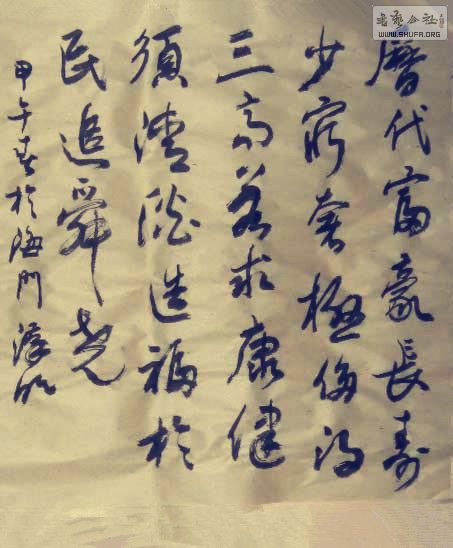 曆代富豪長壽
少窮奢極侈得
三高若求康健
須清淡造福於
民追舜堯
甲午春於海門
書藝公社
WWW.SHUFA.ORG